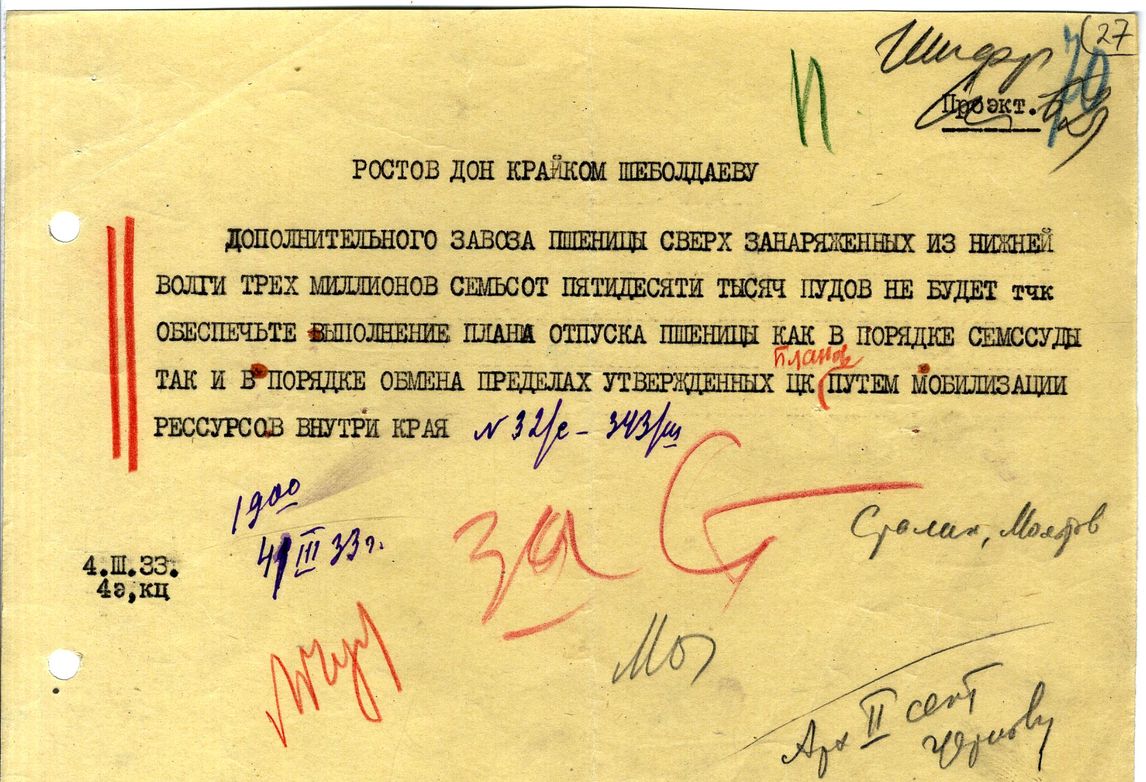 (27
Шифр
70
Проэкт.
РОСТОВ ДОН КРАЙКОМ ШЕБОЛДАЕВУ
ДОПОЛНИТЕЛЬНОГО ЗАВОЗА ПШЕНИЦЫ СВЕРХ ЗАНАРЯЖЕННЫХ ИЗ НИЖНЕЙ
ВОЛГИ ТРЕХ МИЛЛИОНОВ СЕМЬСОТ ПЯТИДЕСЯТИ ТЫСЯЧ ПУДОВ НЕ БУДЕТ тчк
ОБЕСПЕЧЬТЕ ВЫПОЛНЕНИЕ ПЛАНА ОТПУСКА ПШЕНИЦЫ КАК В ПОРЯДКЕ СЕМССУДЫ
планов
ТАК И В ПОРЯДКЕ ОБМЕНА ПРЕДЕЛАХ УТВЕРЖДЕННЫХ ЦК ПУТЕМ МОБИЛИЗАЦИИ
РЕССУРСОВ ВНУТРИ КРАЯ N 32/с - 343/ш
1900
4/III 33 г.
за
Сталин, Молотов
4.III.33.
4э,кц
Мол
Арх II сект
Чернову